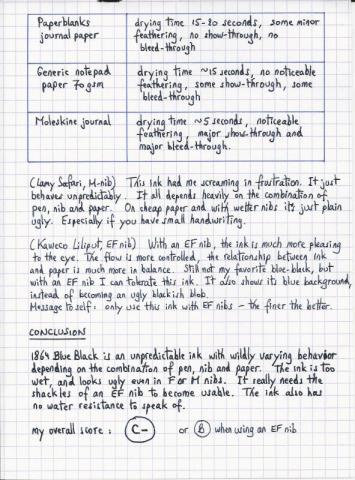 Paperblanks journal paper
drying time 15-20 seconds, some minor
feathering, no show-through, no
bleed-through
Generic notepad paper 70gsm
drying time ~15 seconds, no noticeable
feathering, some show-through, some
bleed-through
Moleskine journal
drying time ~5 seconds, noticable
feathering, major show-through and
major bleed-through.
(Lamy Safari, M-nib) This ink had me screaming in frustration. It just
behaves unpredictably. It all depends heavily on the combination of
pen, nib and paper. On cheap paper and with wetter nibs it's just plain
ugly. Especially if you have small handwriting.
(Kaweco Liliput, EF nib) With an EF nib, the ink is much more pleasing
to the eye. The flow is more controlled, the relationship between ink
and paper is much more in balance. Still not my favorite blue-black, but
with an EF nib I can tolerate this ink. It also shows its blue background,
instead of becoming an ugly blackish blob.
Message to self: only use this ink with EF nibs - the finer the better.
CONCLUSION
1864 Blue Black is an unpredictable ink with wildly varying behavior
depending on the combination of pen, nib and paper. The ink is too
wet, and looks ugly even in F or M nibs. It really needs the
shackles of an EF nib to become usable. The ink also has
no water resistance to speak of.
My overall score: C- or B when using an EF nib